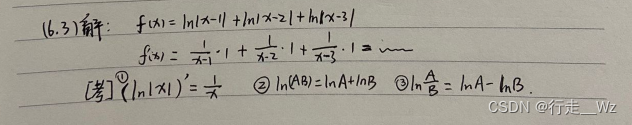 (6.3)解: f(x) = ln|x-1| + ln|x-2| + ln|x-3|
f'(x) = 1/(x-1)·1 + 1/(x-2)·1 + 1/(x-3)·1 = ……
[考] ①(ln|x|)' = 1/x ② ln(AB) = lnA + lnB ③ ln A/B = lnA - lnB.
CSDN @行走__Wz